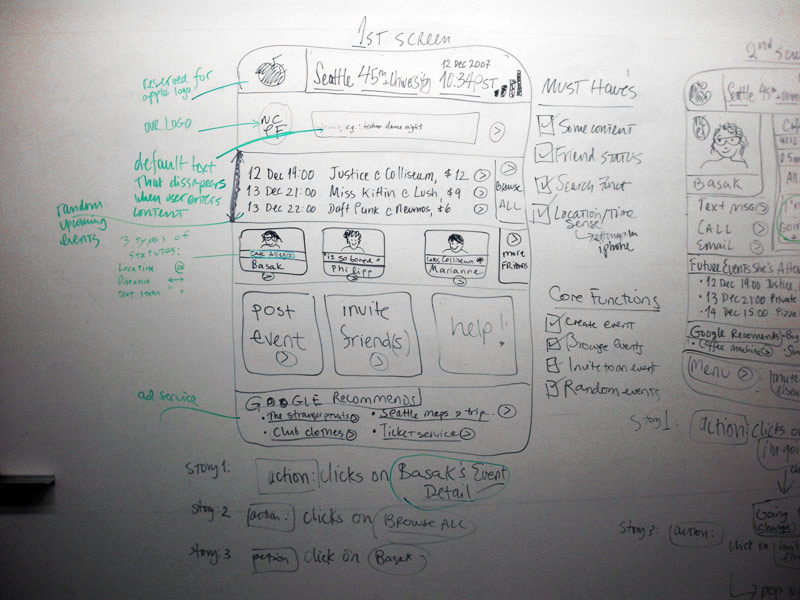 1ST SCREEN
12 Dec 2007
Seattle 45th University 10:34 PST
reserved for
apple logo
OUR LOGO
NC
PF
e.g.: techno dance night
default text
That dissapears
when user enters
content
12 Dec 19:00 Justice @ Colliseum, $12
13 Dec 21:00 Miss Kittin @ Lush, $9
13 Dec 22:00 Daft Punk @ Neumos, $6
Browse
ALL
random
upcoming
events
3 types of
statuses:
Location @
Distance ↔
text item " "
Cafe Allegro
Basak
"is so bored"
Philipp
Colliseum
Marianne
more
FRIENDS
post
event
invite
friend(s)
help!
ad service
GOOGLE Recommends
• The strangefruits
• Seattle maps > trip..
• Club clothes
• Ticket service
Must Have's
Some content
Friend STATUS
Search Funct
Location/Time
sense
settings in
iphone
Core Functions
Create event
Browse Events
Invite to an event
Random events
Story 1: action: clicks on Basak's Event
Detail
Story: 2 action: clicks on BROWSE ALL
Story: 3 action click on Basak
2nd SCRE
Seattle 45th
Basak
Text msg
CALL
Email
I'm
Going
Future Events She's A
• 12 Dec 19:00 Justice,
• 13 Dec 21:00 Private
• 14 Dec 15:00 Pizza
Google Recomends
• Coffee machine
Menu
invite
else
Story 1: action: clicks on
I'm goi
Going
change
Story 3: action:
click on invite
pop up